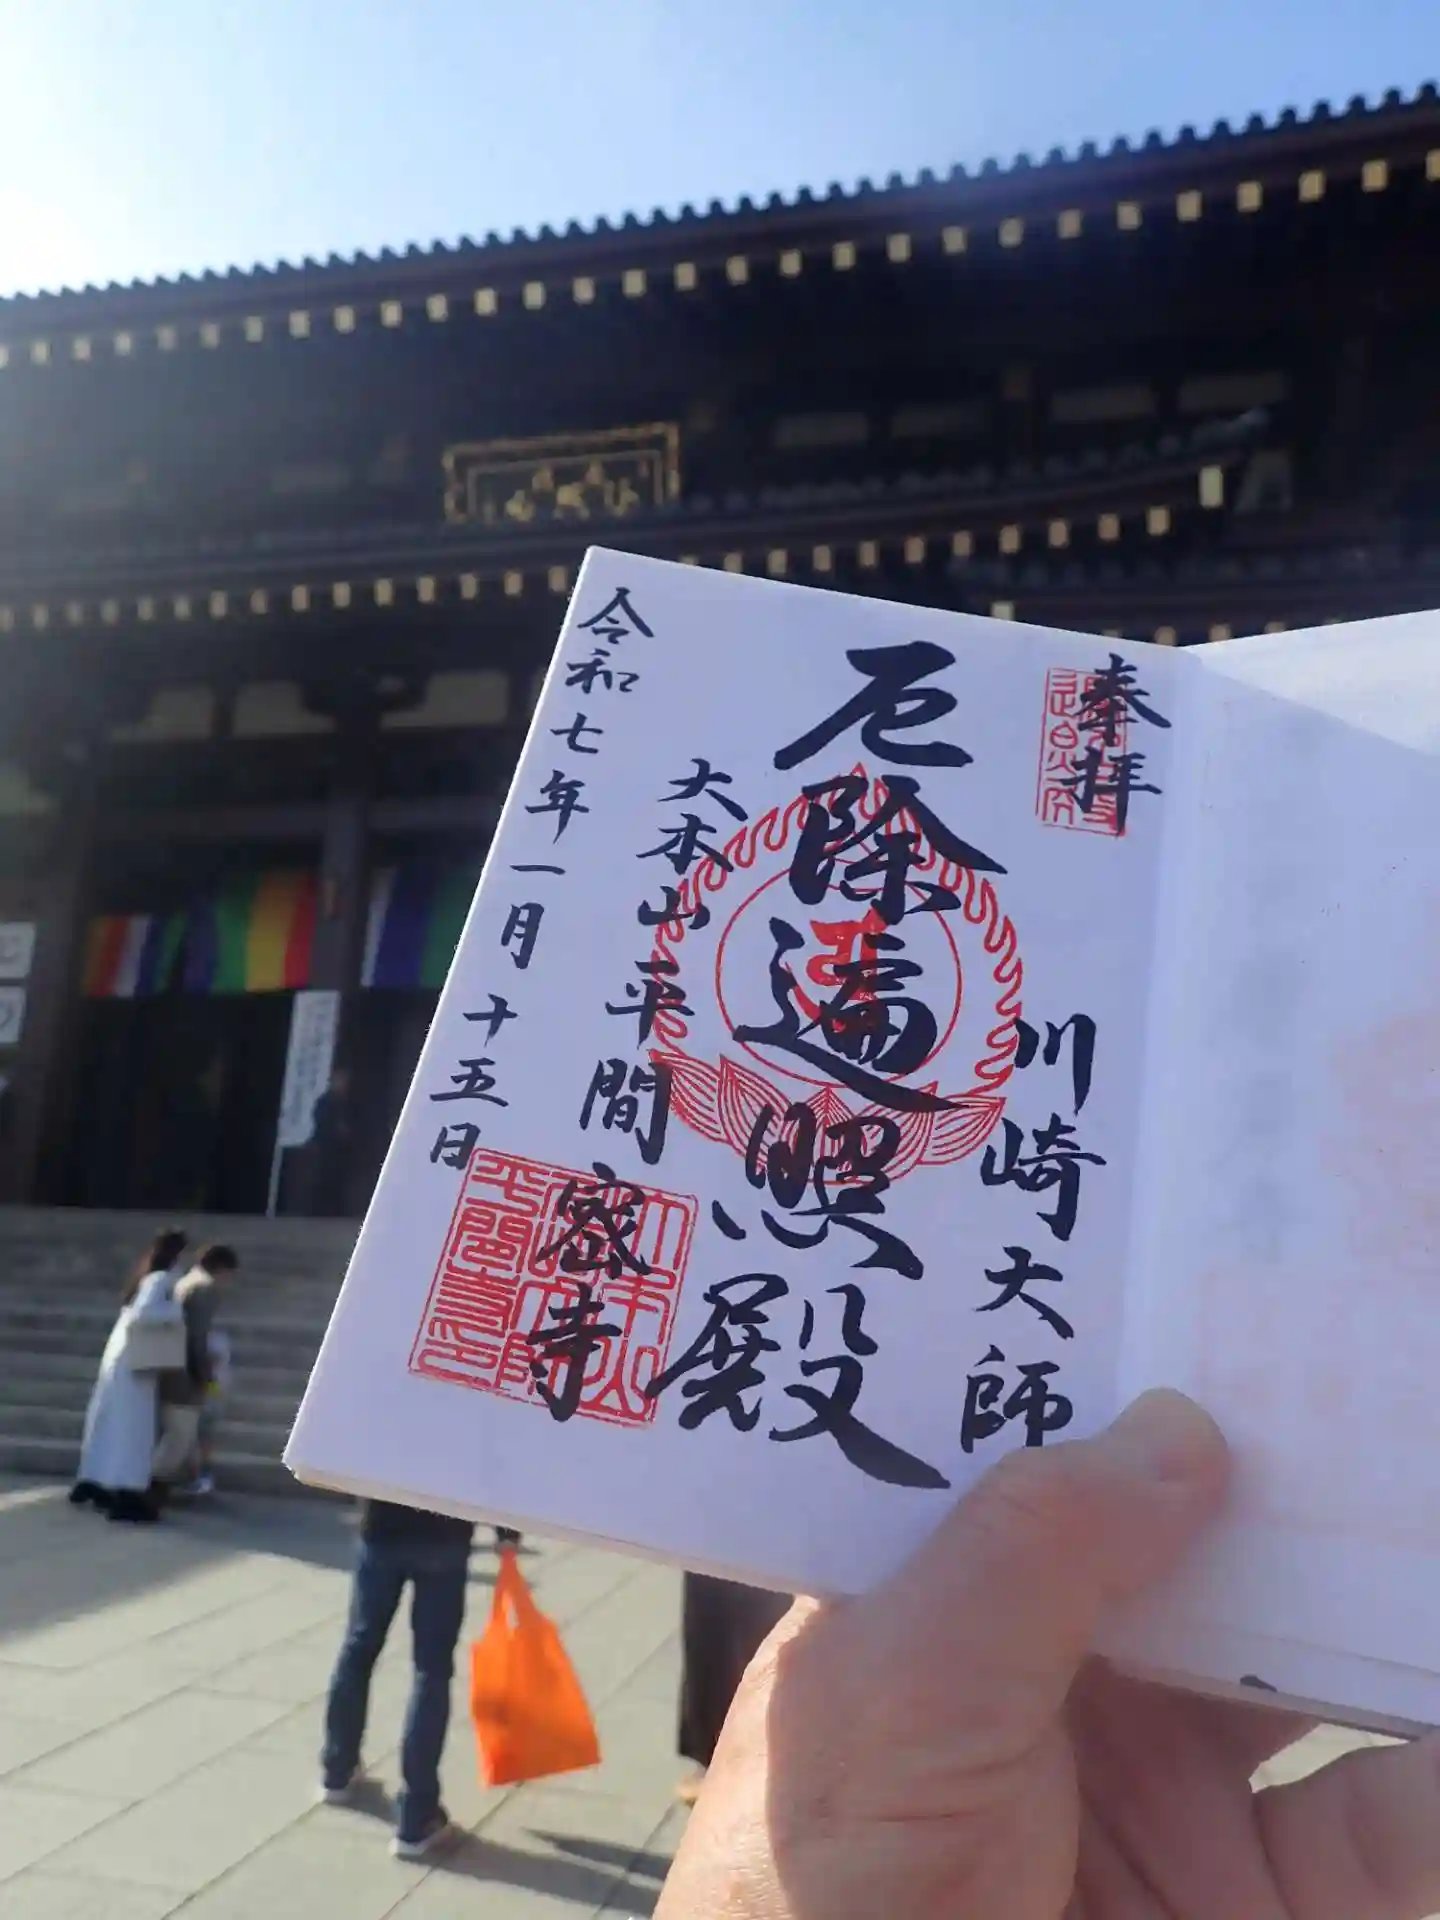 奉拝
川崎大師
厄除遍照殿
大本山平間密寺
令和七年一月十五日